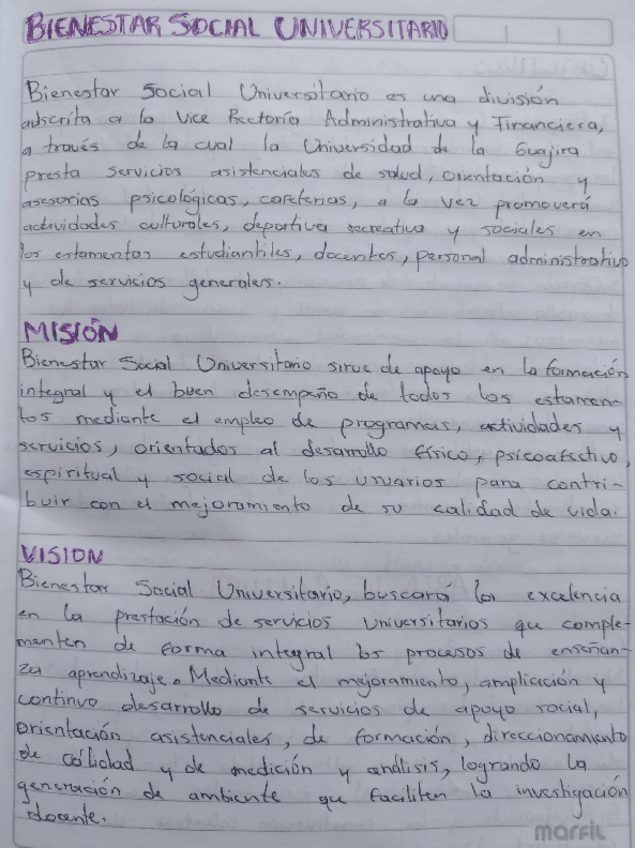 BIENESTAR SOCIAL UNIVERSITARIO
Bienestar Social Universitario es una división
adscrita a la Vice Rectoría Administrativa y Financiera,
a través de la cual la Universidad de la Guajira
presta servicios asistenciales de salud, orientación y
asesorias psicológicas, cafeterias, a la vez promoverá
actividades culturales, deportiva recreativa y sociales en
los estamentos estudiantiles, docentes, personal administrativo
y de servicios generales.
MISIÓN
Bienestar Social Universitario sirve de apoyo en la formación
integral y el buen desempeño de todos los estamen-
tos mediante el empleo de programas, actividades y
servicios, orientados al desarrollo físico, psicoafectivo,
espiritual y social de los usuarios para contri-
buir con el mejoramiento de su calidad de vida.
VISION
Bienestar Social Universitario, buscará la excelencia
en la prestación de servicios Universitarios que comple-
menten de forma integral los procesos de enseñan-
za aprendizaje. Mediante el mejoramiento, ampliación y
continuo desarrollo de servicios de apoyo social,
orientación asistenciales, de formación, direccionamiento
de calidad y de medición y análisis, logrando la
generación de ambiente que faciliten la investigación
docente.
marfil